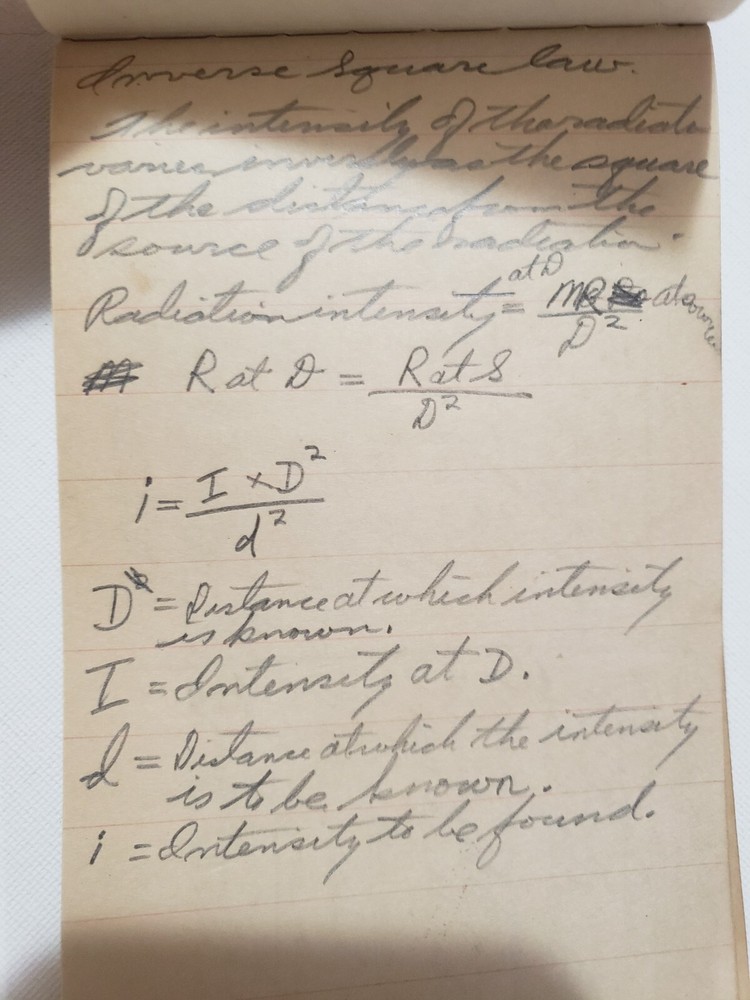 Inverse Square law.
The intensity of the radiati
varies inversly as the square
of the distance from the
source of the radiation.
at D
Radiation intensity = MR at source
D²
R at D = R at S
D²
i = I × D²
d²
D = Distance at which intensity
is known.
I = Intensity at D.
d = Distance at which the intensity
is to be known.
i = Intensity to be found.